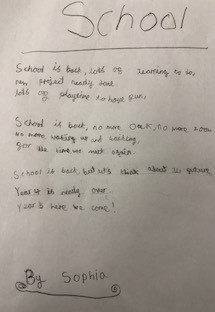 School
School is back, lots of learning to do,
new project ready too.
lots of playtime no hope fun.
School is back, no more Oak, no more zoom
no more waking up and waiting
for the time we meet again.
School is back, but let's think about the future
Year 4 is nearly over...
Year 5 here we come!
By Sophia